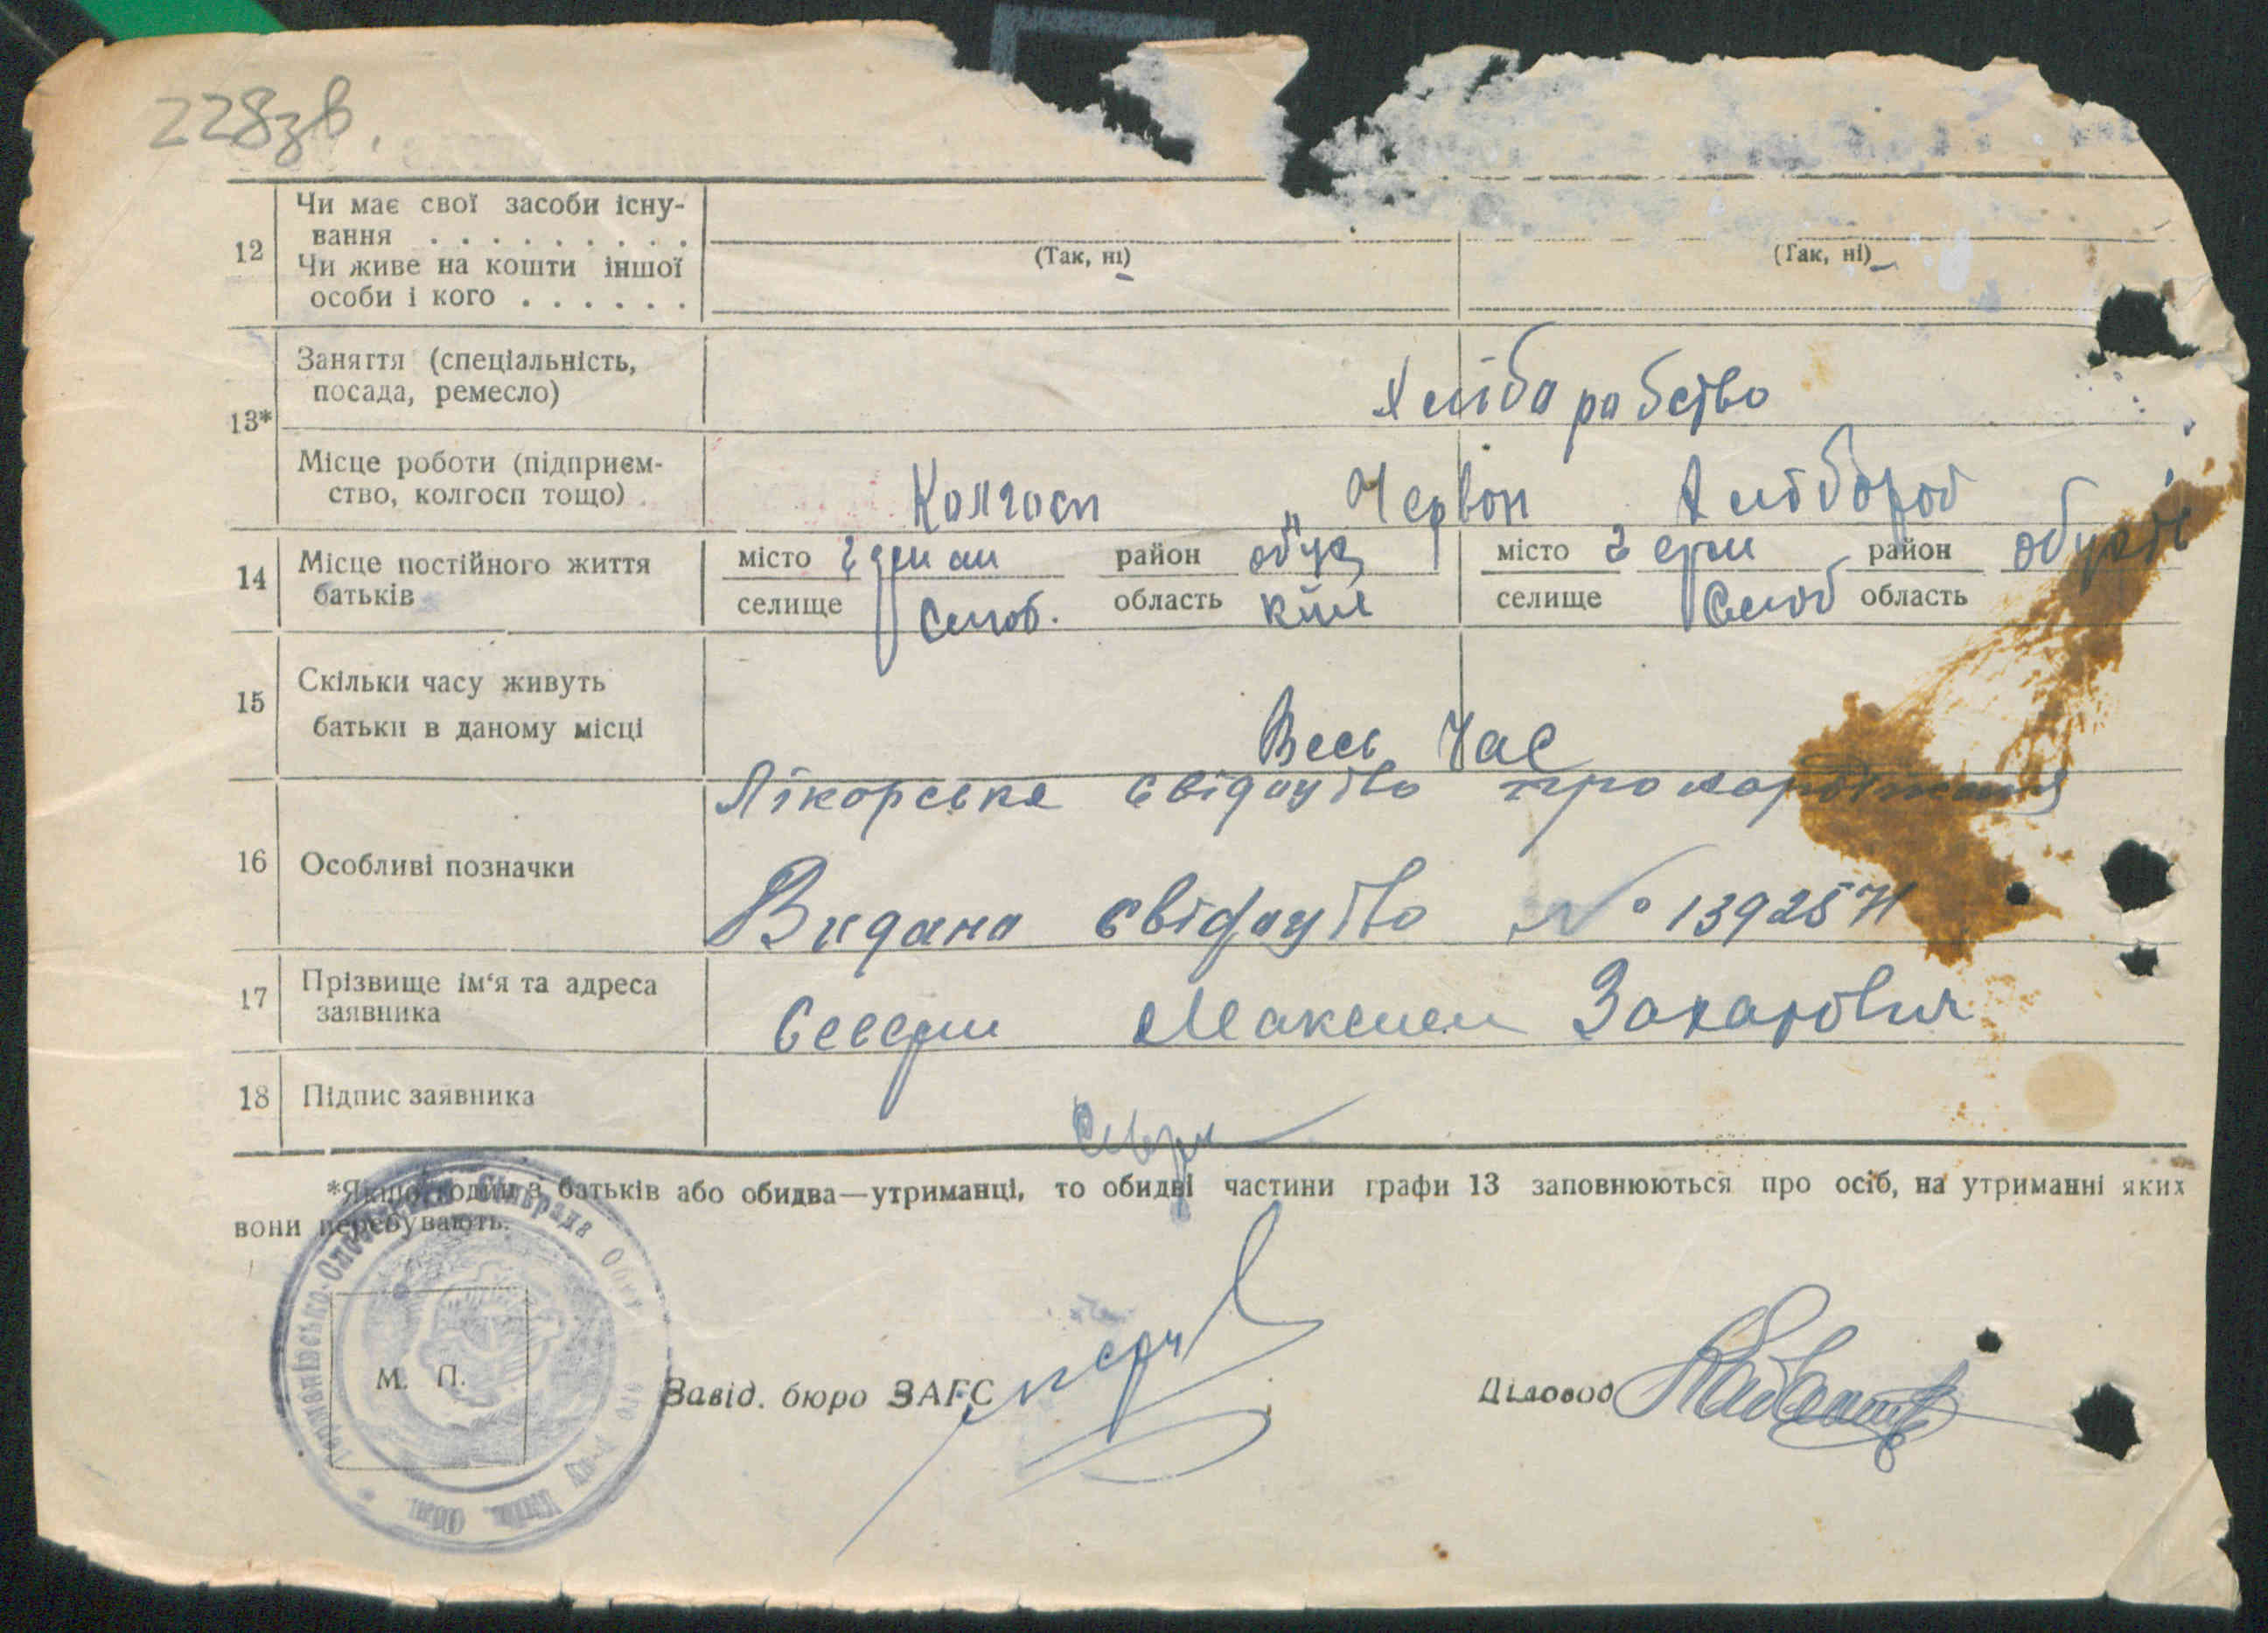 228зв.
12 Чи має свої засоби існу-
вання . . . . . . . . .
(Так, ні) (Так, ні)
Чи живе на кошти іншої
особи і кого . . . . . .
13* Заняття (спеціальність,
посада, ремесло)
Хлібарабство
Місце роботи (підприєм-
ство, колгосп тощо)
Колгосп „Червон Хлібороб
14 Місце постійного життя
батьків
місто район місто район
селище Слоб. область Київ селище Слоб область
15 Скільки часу живуть
батьки в даному місці
Весь Час
16 Особливі позначки
Лікорське свідоцтво про народження
Видано свідоцтво №
17 Прізвище ім'я та адреса
заявника
Северин Максим Захарович
18 Підпис заявника
*Якщо один з батьків або обидва—утриманці, то обидві частини графи 13 заповнюються про осіб, на утриманні яких
вони перебувають.
М. П.
Завід. бюро ЗАГС
Діловод